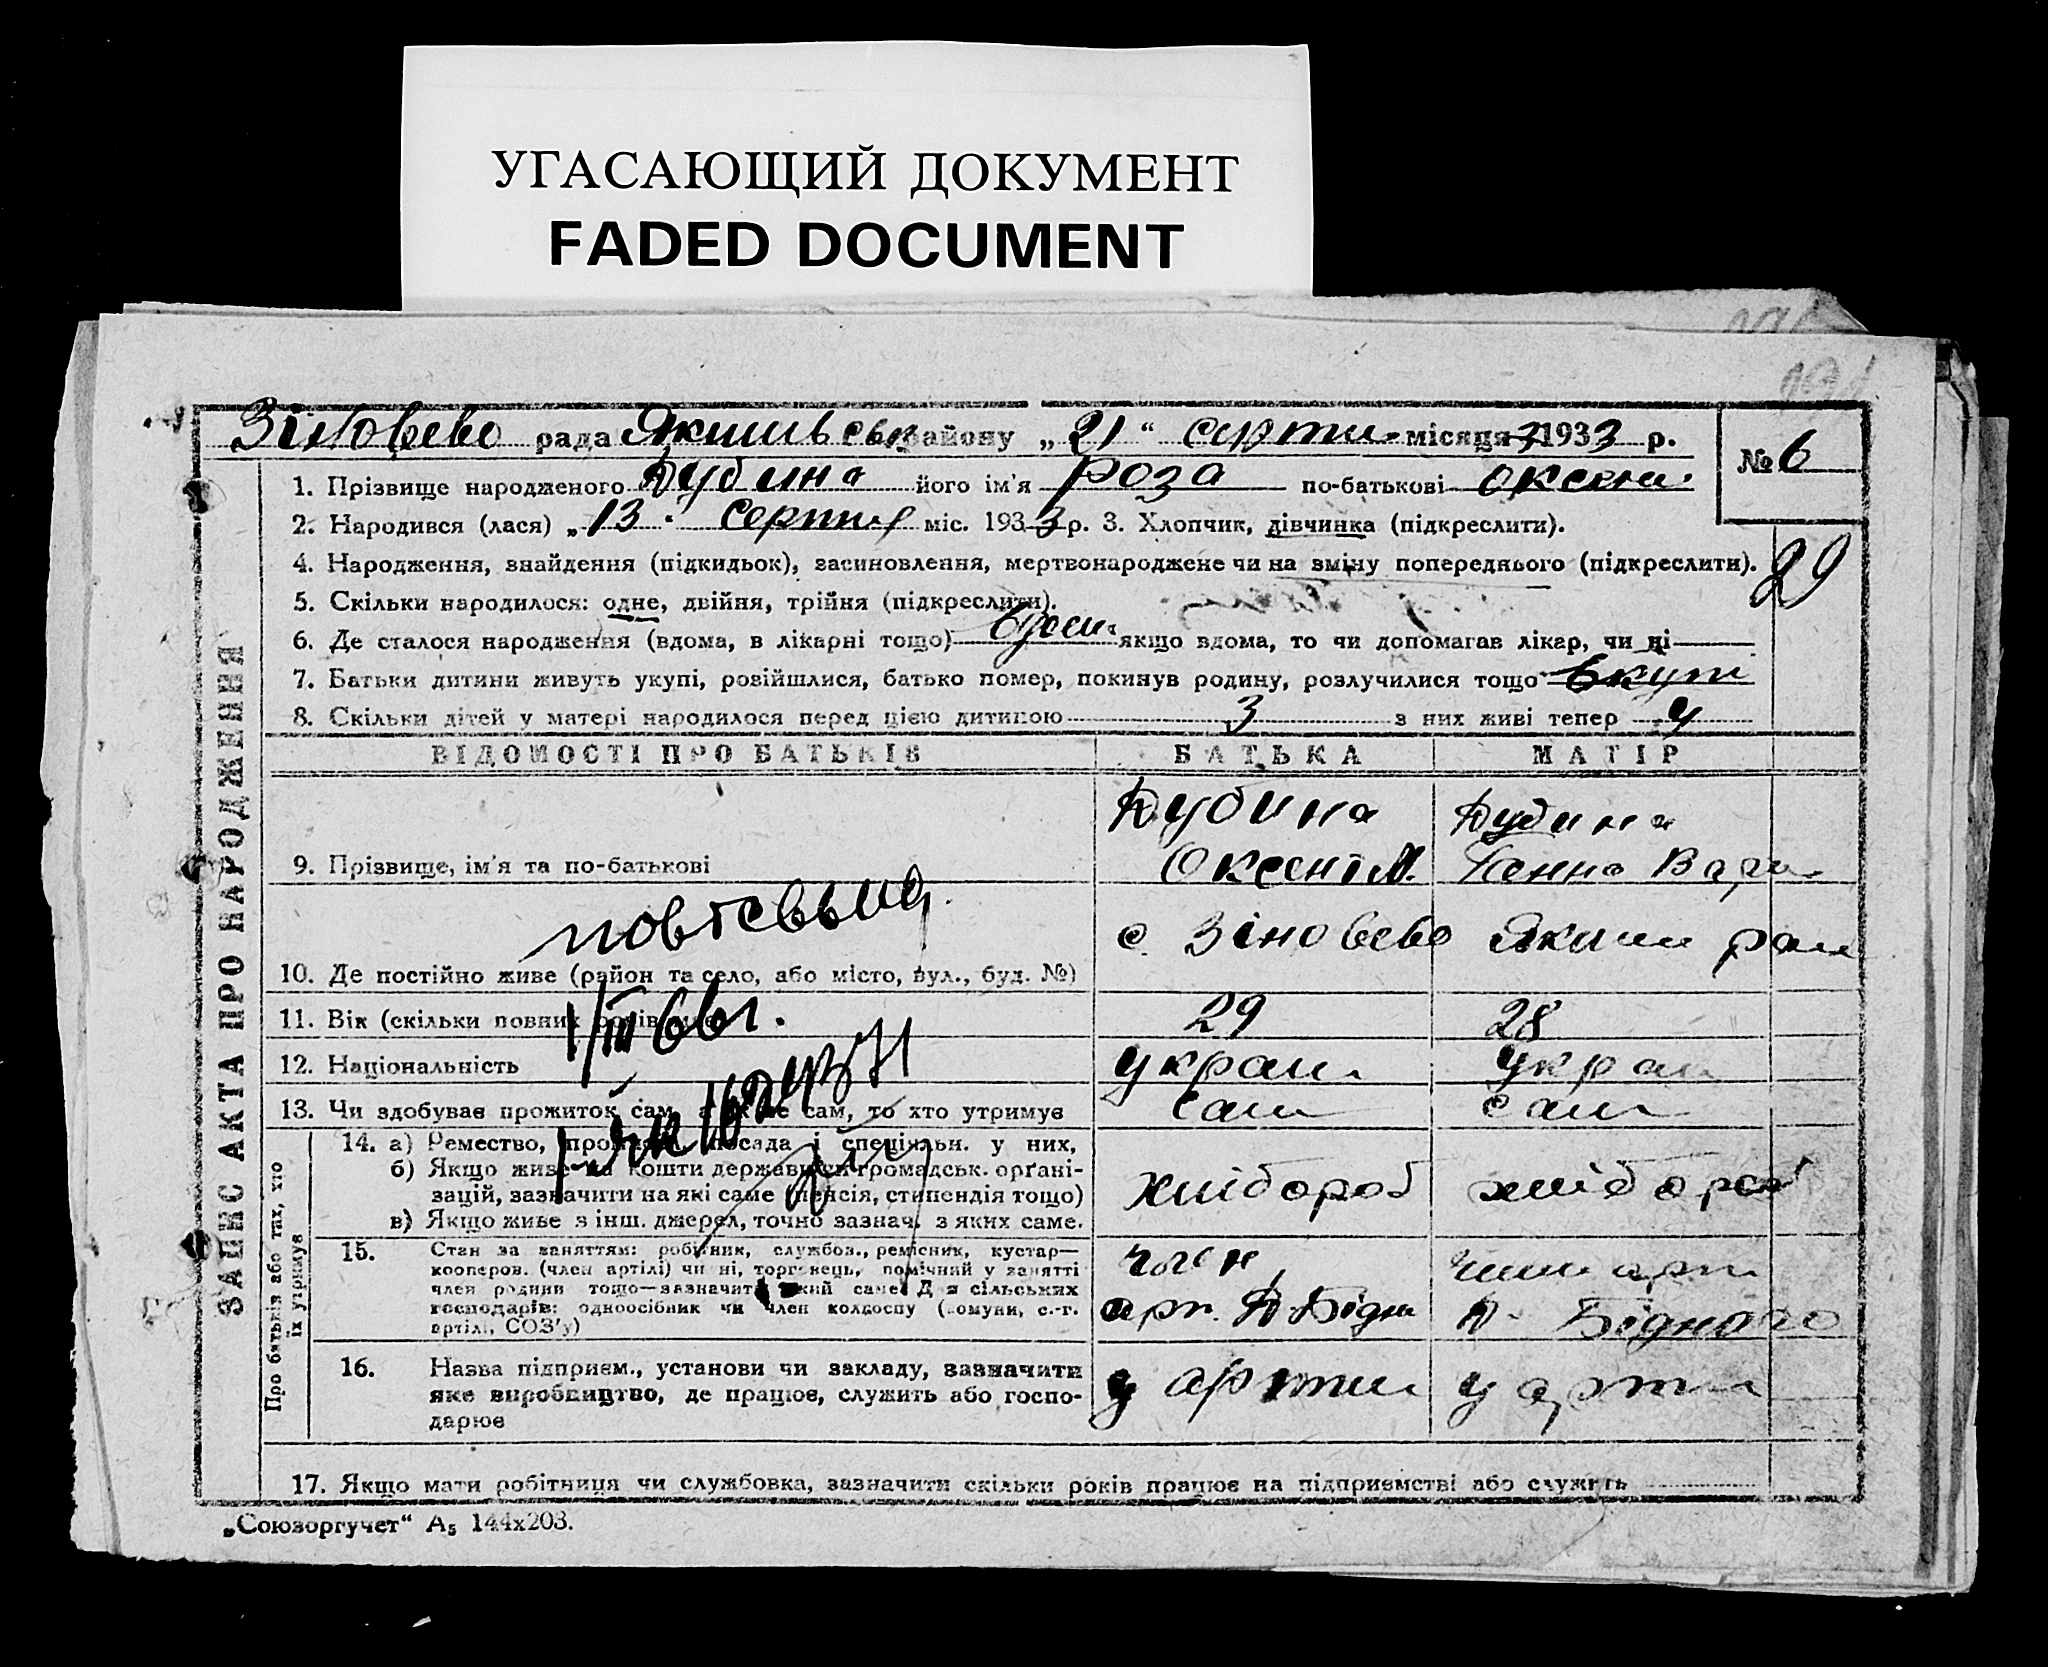 УГАСАЮЩИЙ ДОКУМЕНТ
FADED DOCUMENT
Зіновєво рада району „21“ серпня місяця 1933 р.
№ 6
1. Прізвище народженого Дубина його ім'я Роза по-батькові Оксент.
2. Народився (лася) „13 серпня міс. 1933 р. 3. Хлопчик, дівчинка (підкреслити).
4. Народження, знайдення (підкидьок), засиновлення, мертвонароджене чи на зміну попереднього (підкреслити).
29
5. Скільки народилося: одне, двійня, трійня (підкреслити).
6. Де сталося народження (вдома, в лікарні тощо) якщо вдома, то чи допомагав лікар, чи ні
7. Батьки дитини живуть укупі, розійшлися, батько помер, покинув родину, розлучилися тощо вкупі
8. Скільки дітей у матері народилося перед цією дитиною 3 з них живі тепер 4
ЗАПИС АКТА ПРО НАРОДЖЕННЯ
ВІДОМОСТІ ПРО БАТЬКІВ БАТЬКА МАТІР
Дубина Дубина
9. Прізвище, ім'я та по-батькові Оксент М. Ганна
с. Зіновєво
10. Де постійно живе (район та село, або місто, вул., буд. №)
11. Вік (скільки повних 29 28
1/III 66г.
12. Національність украи украи
13. Чи здобуває прожиток сам, а як не сам, то хто утримує сам сам
Про батьків або тих, хто їх утримує
14. а) Ремество, посада і спеціяльн. у них,
б) Якщо живе на кошти державн. чи громадськ. орґані-
зацій, зазначити на які саме (пенсія, стипендія тощо) хлібороб хлібороб
в) Якщо живе з інш. джерел, точно зазнач. з яких саме.
15. Стан за заняттям: робітник, службов., ремісник, кустар— член
кооперов. (член артілі) чи ні, торговець, помічний у занятті
член родини тощо—зазначити який саме Для сільських
господарів: одноосібник чи член колгоспу (комуни, с.-г. арт. Д. Бідн Д. Бідного
артілі, СОЗ'у)
16. Назва підприєм., установи чи закладу, зазначити
яке виробництво, де працює, служить або госпо- у артіл у артіл
дарює
17. Якщо мати робітниця чи службовка, зазначити скільки років працює на підприємстві або служить
„Союзоргучет“ А₅ 144х203.